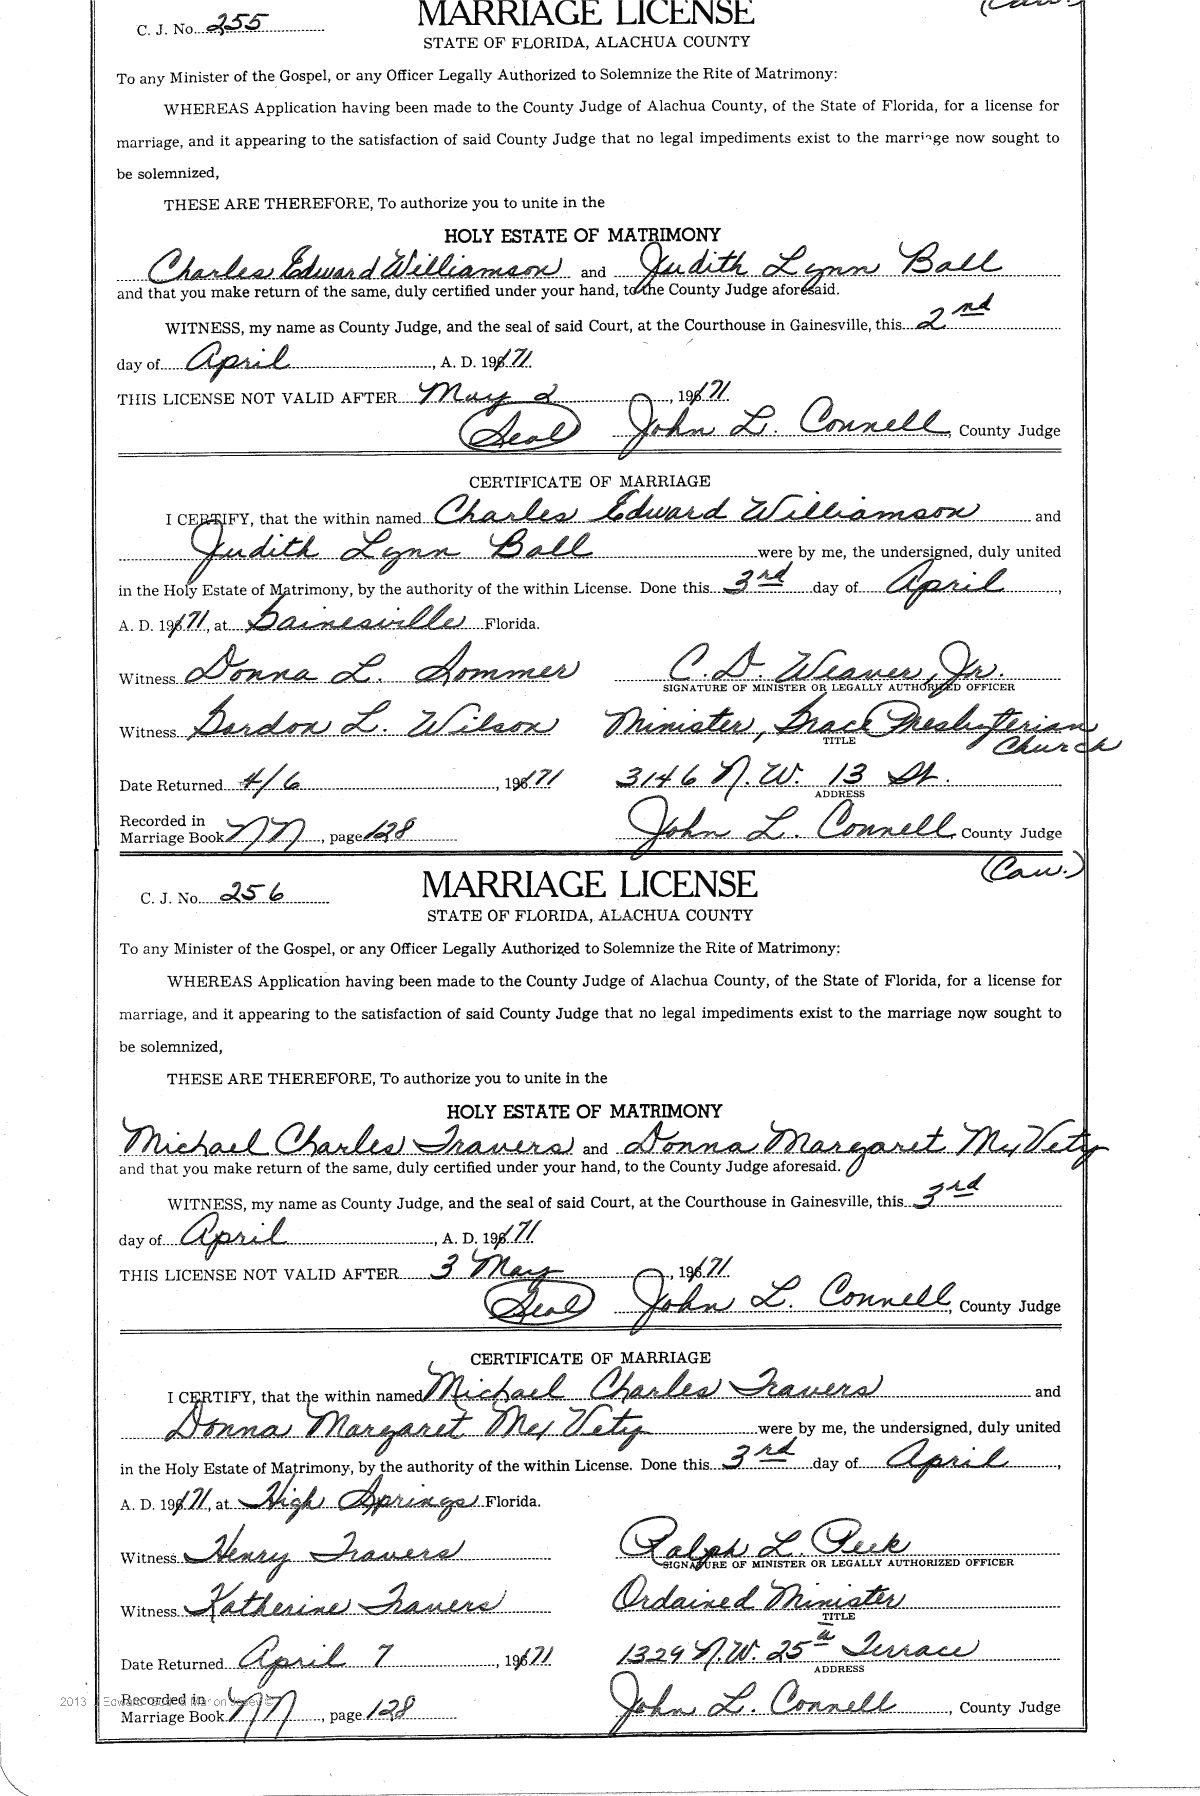 C. J. No. 255
MARRIAGE LICENSE
STATE OF FLORIDA, ALACHUA COUNTY
To any Minister of the Gospel, or any Officer Legally Authorized to Solemnize the Rite of Matrimony:
WHEREAS Application having been made to the County Judge of Alachua County, of the State of Florida, for a license for
marriage, and it appearing to the satisfaction of said County Judge that no legal impediments exist to the marriage now sought to
be solemnized,
THESE ARE THEREFORE, To authorize you to unite in the
HOLY ESTATE OF MATRIMONY
Charles Edward Williamson and Judith Lynn Ball
and that you make return of the same, duly certified under your hand, to the County Judge aforesaid.
WITNESS, my name as County Judge, and the seal of said Court, at the Courthouse in Gainesville, this 2nd
day of April, A. D. 1971.
THIS LICENSE NOT VALID AFTER May 2, 1971.
(Seal) John L. Connell, County Judge
CERTIFICATE OF MARRIAGE
I CERTIFY, that the within named Charles Edward Williamson and
Judith Lynn Ball were by me, the undersigned, duly united
in the Holy Estate of Matrimony, by the authority of the within License. Done this 3rd day of April,
A. D. 1971, at Gainesville Florida.
Witness Donna L. Sommer C. D. Weaver, Jr.
SIGNATURE OF MINISTER OR LEGALLY AUTHORIZED OFFICER
Witness Gordon L. Wilson Minister, Grace Presbyterian Church
TITLE
Date Returned 4/6, 1971 3146 N.W. 13 St.
ADDRESS
Recorded in
Marriage Book NN, page 128 John L. Connell County Judge
(Cau.)
C. J. No. 256
MARRIAGE LICENSE
STATE OF FLORIDA, ALACHUA COUNTY
To any Minister of the Gospel, or any Officer Legally Authorized to Solemnize the Rite of Matrimony:
WHEREAS Application having been made to the County Judge of Alachua County, of the State of Florida, for a license for
marriage, and it appearing to the satisfaction of said County Judge that no legal impediments exist to the marriage now sought to
be solemnized,
THESE ARE THEREFORE, To authorize you to unite in the
HOLY ESTATE OF MATRIMONY
Michael Charles Travers and Donna Margaret McVety
and that you make return of the same, duly certified under your hand, to the County Judge aforesaid.
WITNESS, my name as County Judge, and the seal of said Court, at the Courthouse in Gainesville, this 3rd
day of April, A. D. 1971.
THIS LICENSE NOT VALID AFTER 3 May, 1971.
(Seal) John L. Connell, County Judge
CERTIFICATE OF MARRIAGE
I CERTIFY, that the within named Michael Charles Travers and
Donna Margaret McVety were by me, the undersigned, duly united
in the Holy Estate of Matrimony, by the authority of the within License. Done this 3rd day of April,
A. D. 1971, at High Springs Florida.
Witness Henry Travers Ralph L. Peek
SIGNATURE OF MINISTER OR LEGALLY AUTHORIZED OFFICER
Witness Katherine Travers Ordained Minister
TITLE
Date Returned April 7, 1971 1329 N.W. 25th Terrace
ADDRESS
2013
Recorded in
Marriage Book NN, page 128 John L. Connell, County Judge